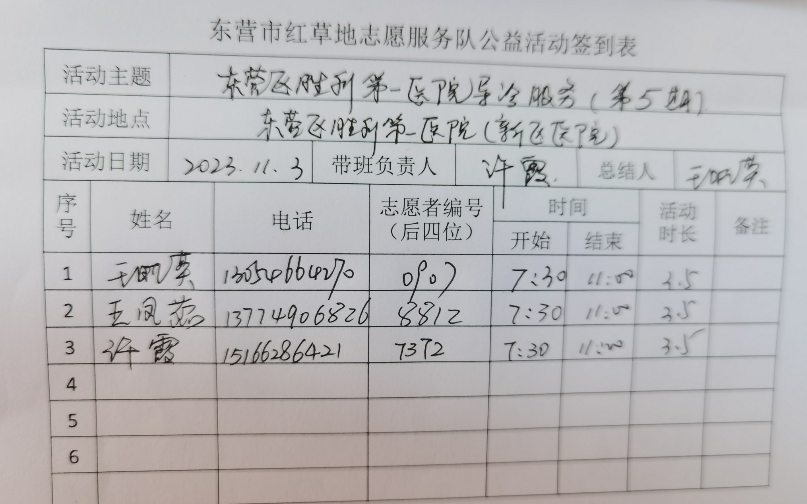 东营市红草地志愿服务队公益活动签到表
活动主题 东营区胜利第一医院导诊服务(第5期)
活动地点 东营区胜利第一医院(新区医院)
活动日期 2023.11.3 带班负责人 许霞 总结人 王
序号 姓名 电话 志愿者编号(后四位) 时间 开始 结束 活动时长 备注
1 王 13054664270 0907 7:30 11:00 3.5
2 王凤茹 13774906826 8812 7:30 11:00 3.5
3 许霞 15166286421 7372 7:30 11:00 3.5
4
5
6